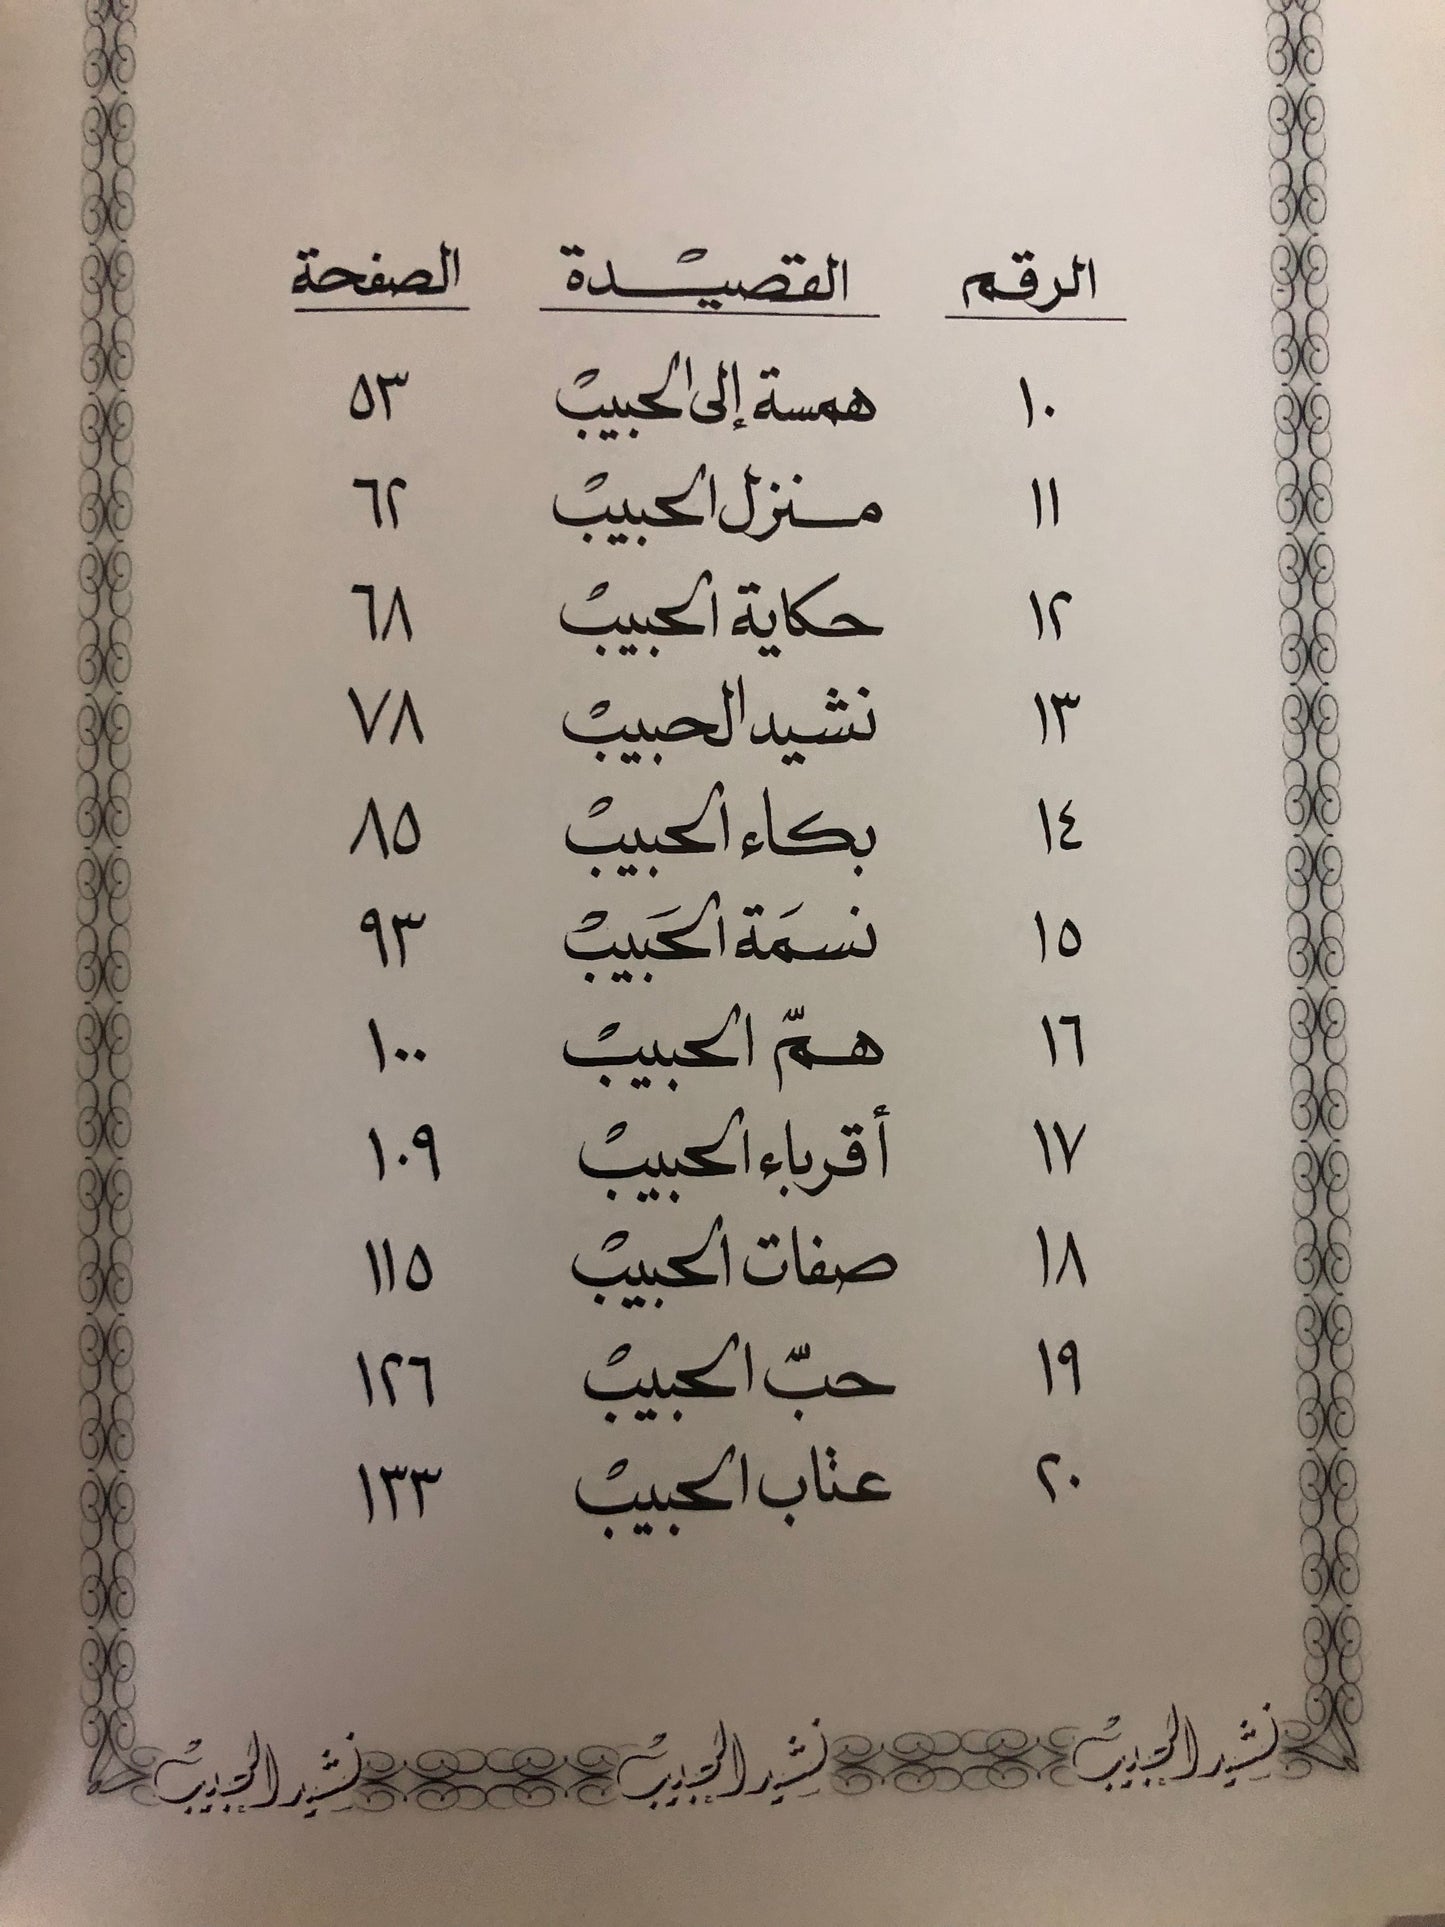 الرقم القصيدة الصفحة
١٠ همسة إلى الحبيب ٥٣
١١ منزل الحبيب ٦٢
١٢ حكاية الحبيب ٦٨
١٣ نشيد الحبيب ٧٨
١٤ بكاء الحبيب ٨٥
١٥ نسمَة الحَبيب ٩٣
١٦ همّ الحبيب ١٠٠
١٧ أقرباء الحبيب ١٠٩
١٨ صفات الحبيب ١١٥
١٩ حبّ الحبيب ١٢٦
٢٠ عتاب الحبيب ١٣٣
نشيد الحبيب نشيد الحبيب نشيد الحبيب